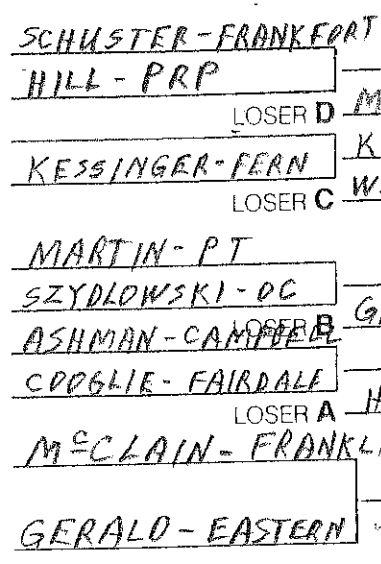 SCHUSTER-FRANKFORT
HILL - PRP
LOSER D M
K
KESSINGER-FERN
LOSER C W
MARTIN- PT
SZYDLOWSKI-OC
LOSER B G
ASHMAN-CAMPBELL
COOGLIE- FAIRDALE
LOSER A H
McCLAIN- FRANKL
GERALD-EASTERN